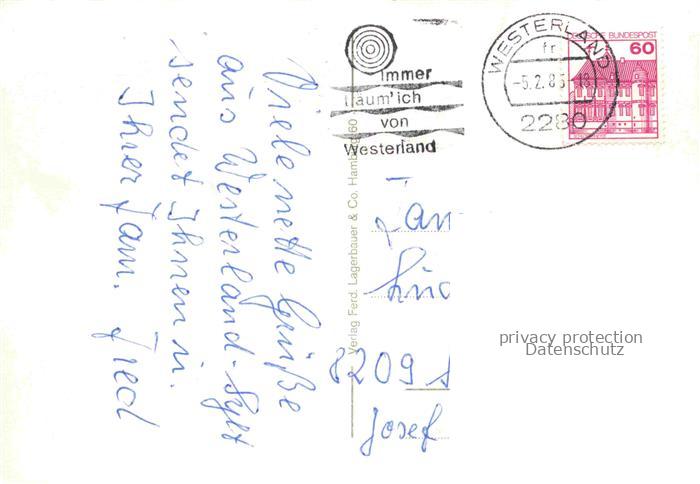 Viele nette Grüße
aus Westerland-Sylt
sendet Ihnen u.
Ihrer Fam. Fred
Verlag Ferd. Lagerbauer & Co. Hamburg 60
Immer
träum' ich
von
Westerland
WESTERLAND
fr
-5.2.85-18
2280
DEUTSCHE BUNDESPOST
60
Fam
8209
Josef
privacy protection
Datenschutz